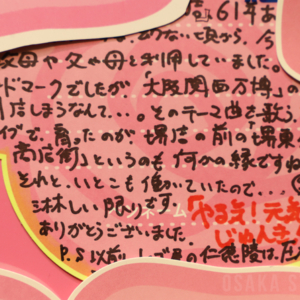 61年あ
ない頃から、今
父母や父や母と利用していました。
ドマークでしたが、「大阪関西万博」の
閉店しまうなんて…。そのテーマ曲を歌う、
イブで、育ったのが堺店の前の堺東
商店街」というのも何かの縁ですね
それと、いとこも働いていたので…
淋しい限りです。
ありがとうございました。
「やる気！元気
じゅんき
P.S 以前
の仁徳陵は、
OSAKA S